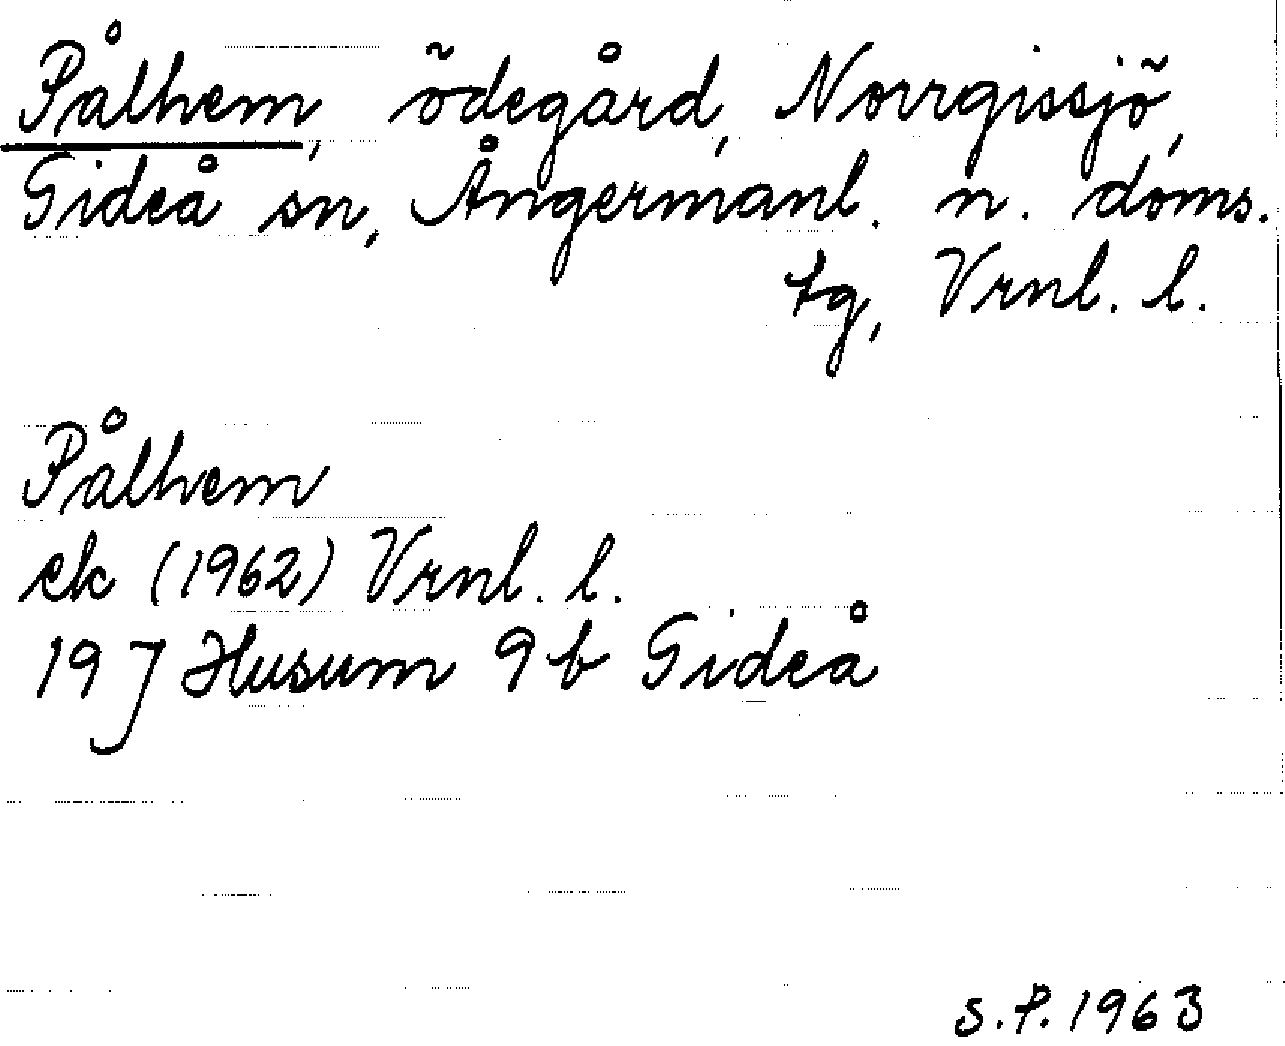 Pålhem, ödegård, Norrgissjö,
Gideå sn, Ångermanl. n. doms.
tg, Vrnl. l.
Pålhem
ek (1962) Vrnl. l.
19 J Husum 9 b Gideå
S.P. 1963